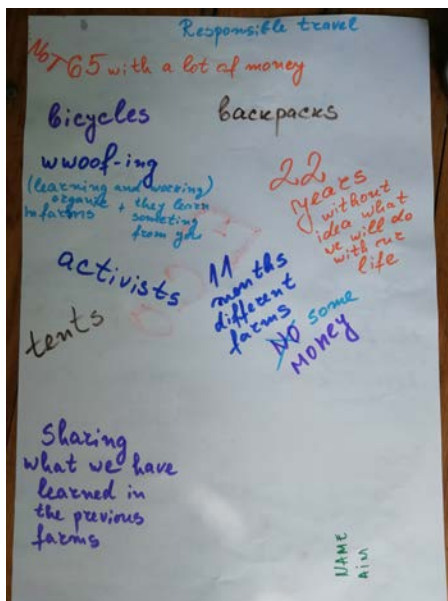 Responsible travel
NOT 65 with a lot of money
bicycles
backpacks
wwoof-ing
(learning and working)
organic + they learn
in farms someting
from you
22
years
without
idea what
we will do
with our
life
activists
11
months
different
farms
tents
NO some
money
Sharing
what we have
learned in
the previous
farms
NAME
AIM